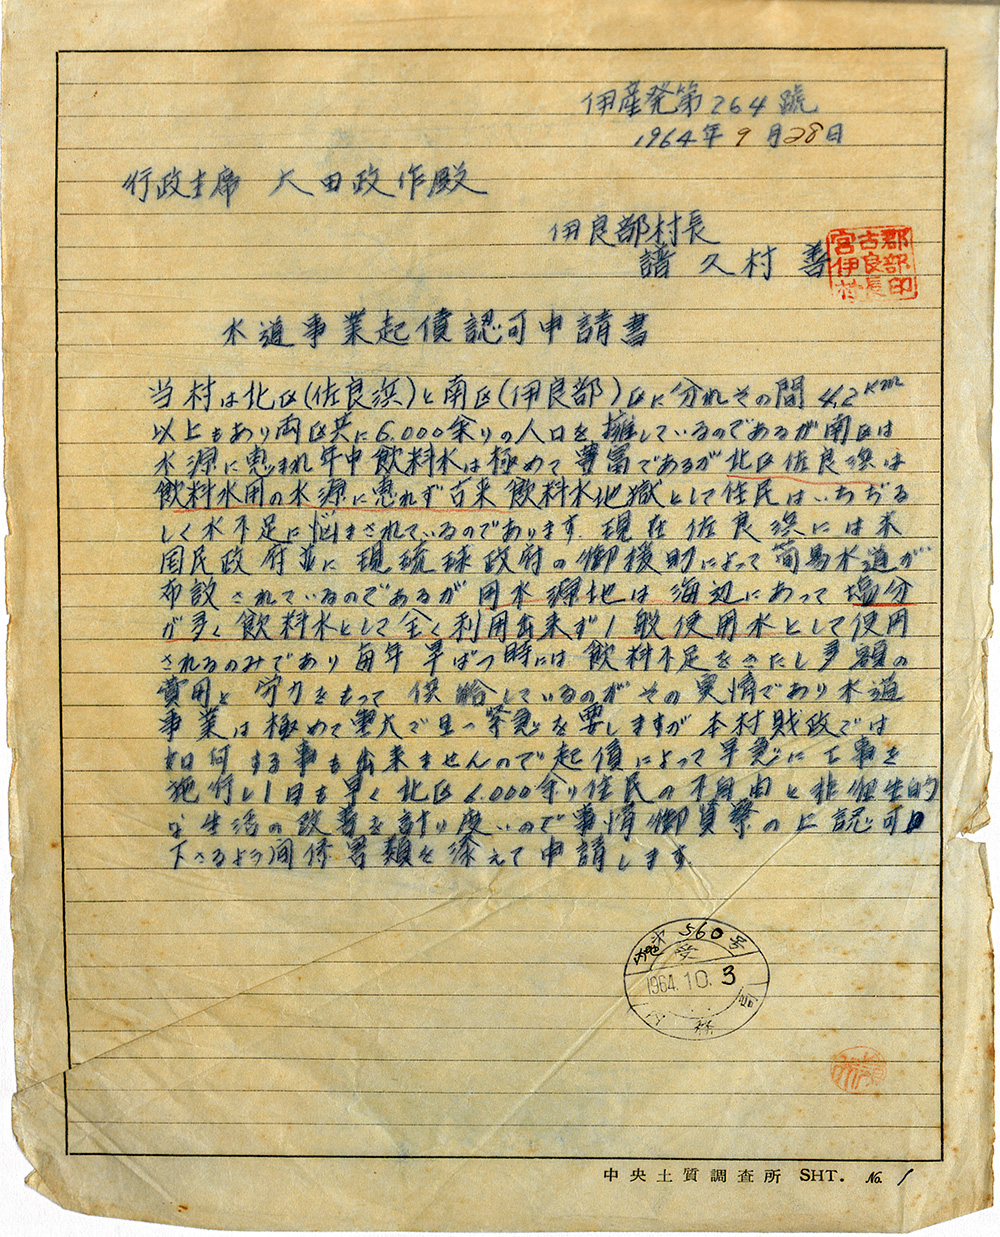 伊産発第264號
1964年9月28日
行政主席 大田政作殿
伊良部村長
譜久村 善
宮古郡
伊良部
村長印
水道事業起債認可申請書
当村は北区(佐良浜)と南区(伊良部)区に分れその間4.2km
以上もあり両区共に6.000余りの人口を擁しているのであるが南区は
水源に恵まれ年中飲料水は極めて豊富であるが北区佐良浜は
飲料水用の水源に恵れず古来飲料水地獄として住民はいちぢる
しく水不足に悩まされているのであります.現在佐良浜には米
国民政府並に現琉球政府の御援助によって簡易水道が
布設されているのであるが用水源地は海辺にあって塩分
が多く飲料水として全く利用出来ず1般使用水として使用
されるのみであり毎年旱ばつ時には飲料不足をきたし多額の
費用と労力をもって供給しているのがその実情であり水道
事業は極めて重大で且つ緊急を要しますが本村財政では
如何する事も出来ませんので起債によって早急に工事を
施行し1日も早く北区6.000余り住民の不自由と非衛生的
な生活の改善を計り度いので事情御賢察の上認可
下さるよう関係書類を添えて申請します.
560号
1964.10.3
中央土質調査所 SHT. No. 1